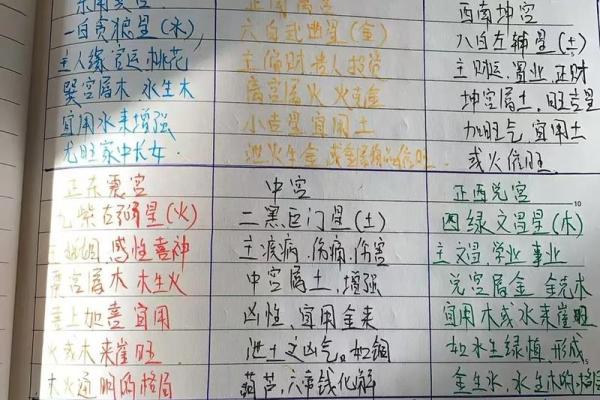 东南巽宫
一白贪狼星(水)
主人缘官运桃花
巽宫属木 水生木
宜用水来增强
尤旺家中长女.
正南离宫
六白武曲星(金)
主偏财贵人投资
离宫属火 火克金
小吉星宜用土
泄火生金
西南坤宫
八白左辅星(土)
主财运、置业、正财
坤宫属土、旺吉星
加旺气宜用土
或火催旺.
正东震宫
九紫右弼星(火)
主婚姻 感性喜神
震宫属木 木生火
喜上加喜 宜用
火或木来崔旺
木火通明的格局
中宫
二黑巨门星(土)
主疾病、伤痛、伤害
中宫属土、增强
凶性、宜用金来
泄土之凶气。如铜
葫芦、六帝钱化解
正西兑宫
四绿文昌星(木)
主文昌、学业 事业
兑宫属金 金克木
宜用木或水来崔旺
如水生绿植 形成
金生水、水生木的格局
10